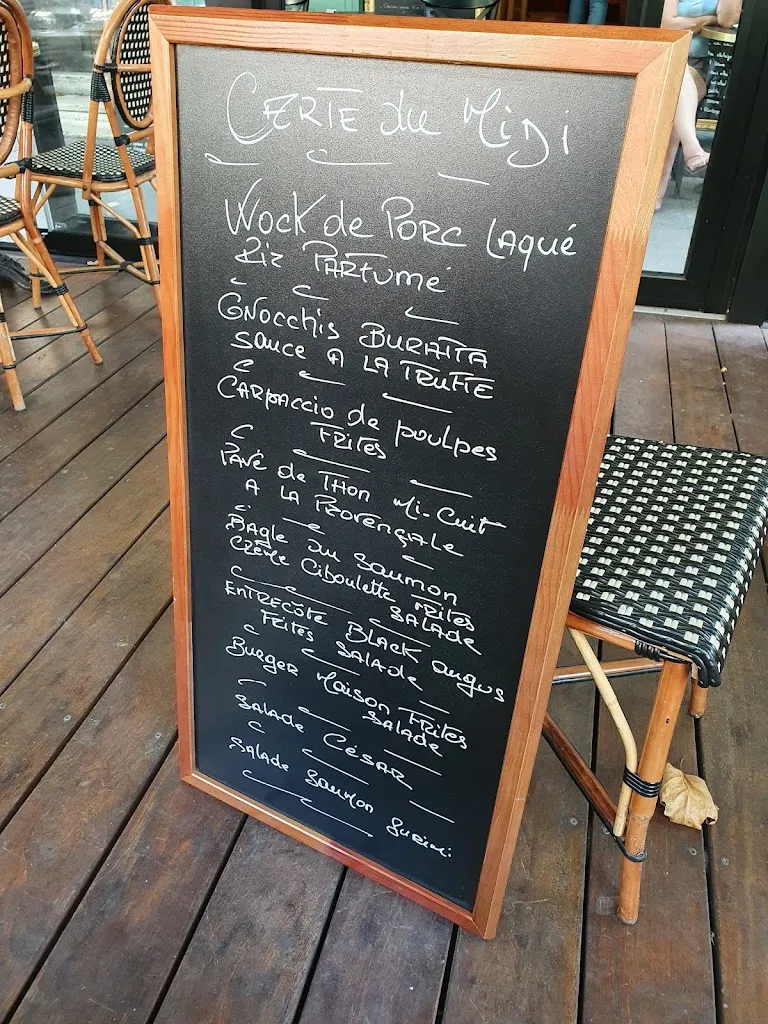 CARTE du MiDi
Wock de PORC LAQué
Riz PARFumé
GNOCCHIS BURATTA
SAUCE A LA TRUFFE
CARPACCIO de poulpes
FRITES
PAVÉ de THON Mi-Cuit
A LA PROVENÇALE
BAGLE DU SAUMON
CRÈME CIBOULETTE FRITES
SALADE
ENTRECÔTE BLACK ANGUS
FRITES SALADE
BURGER MAISON FRITES
SALADE
SALADE CÉSAR
SALADE SAUMON SURIMI